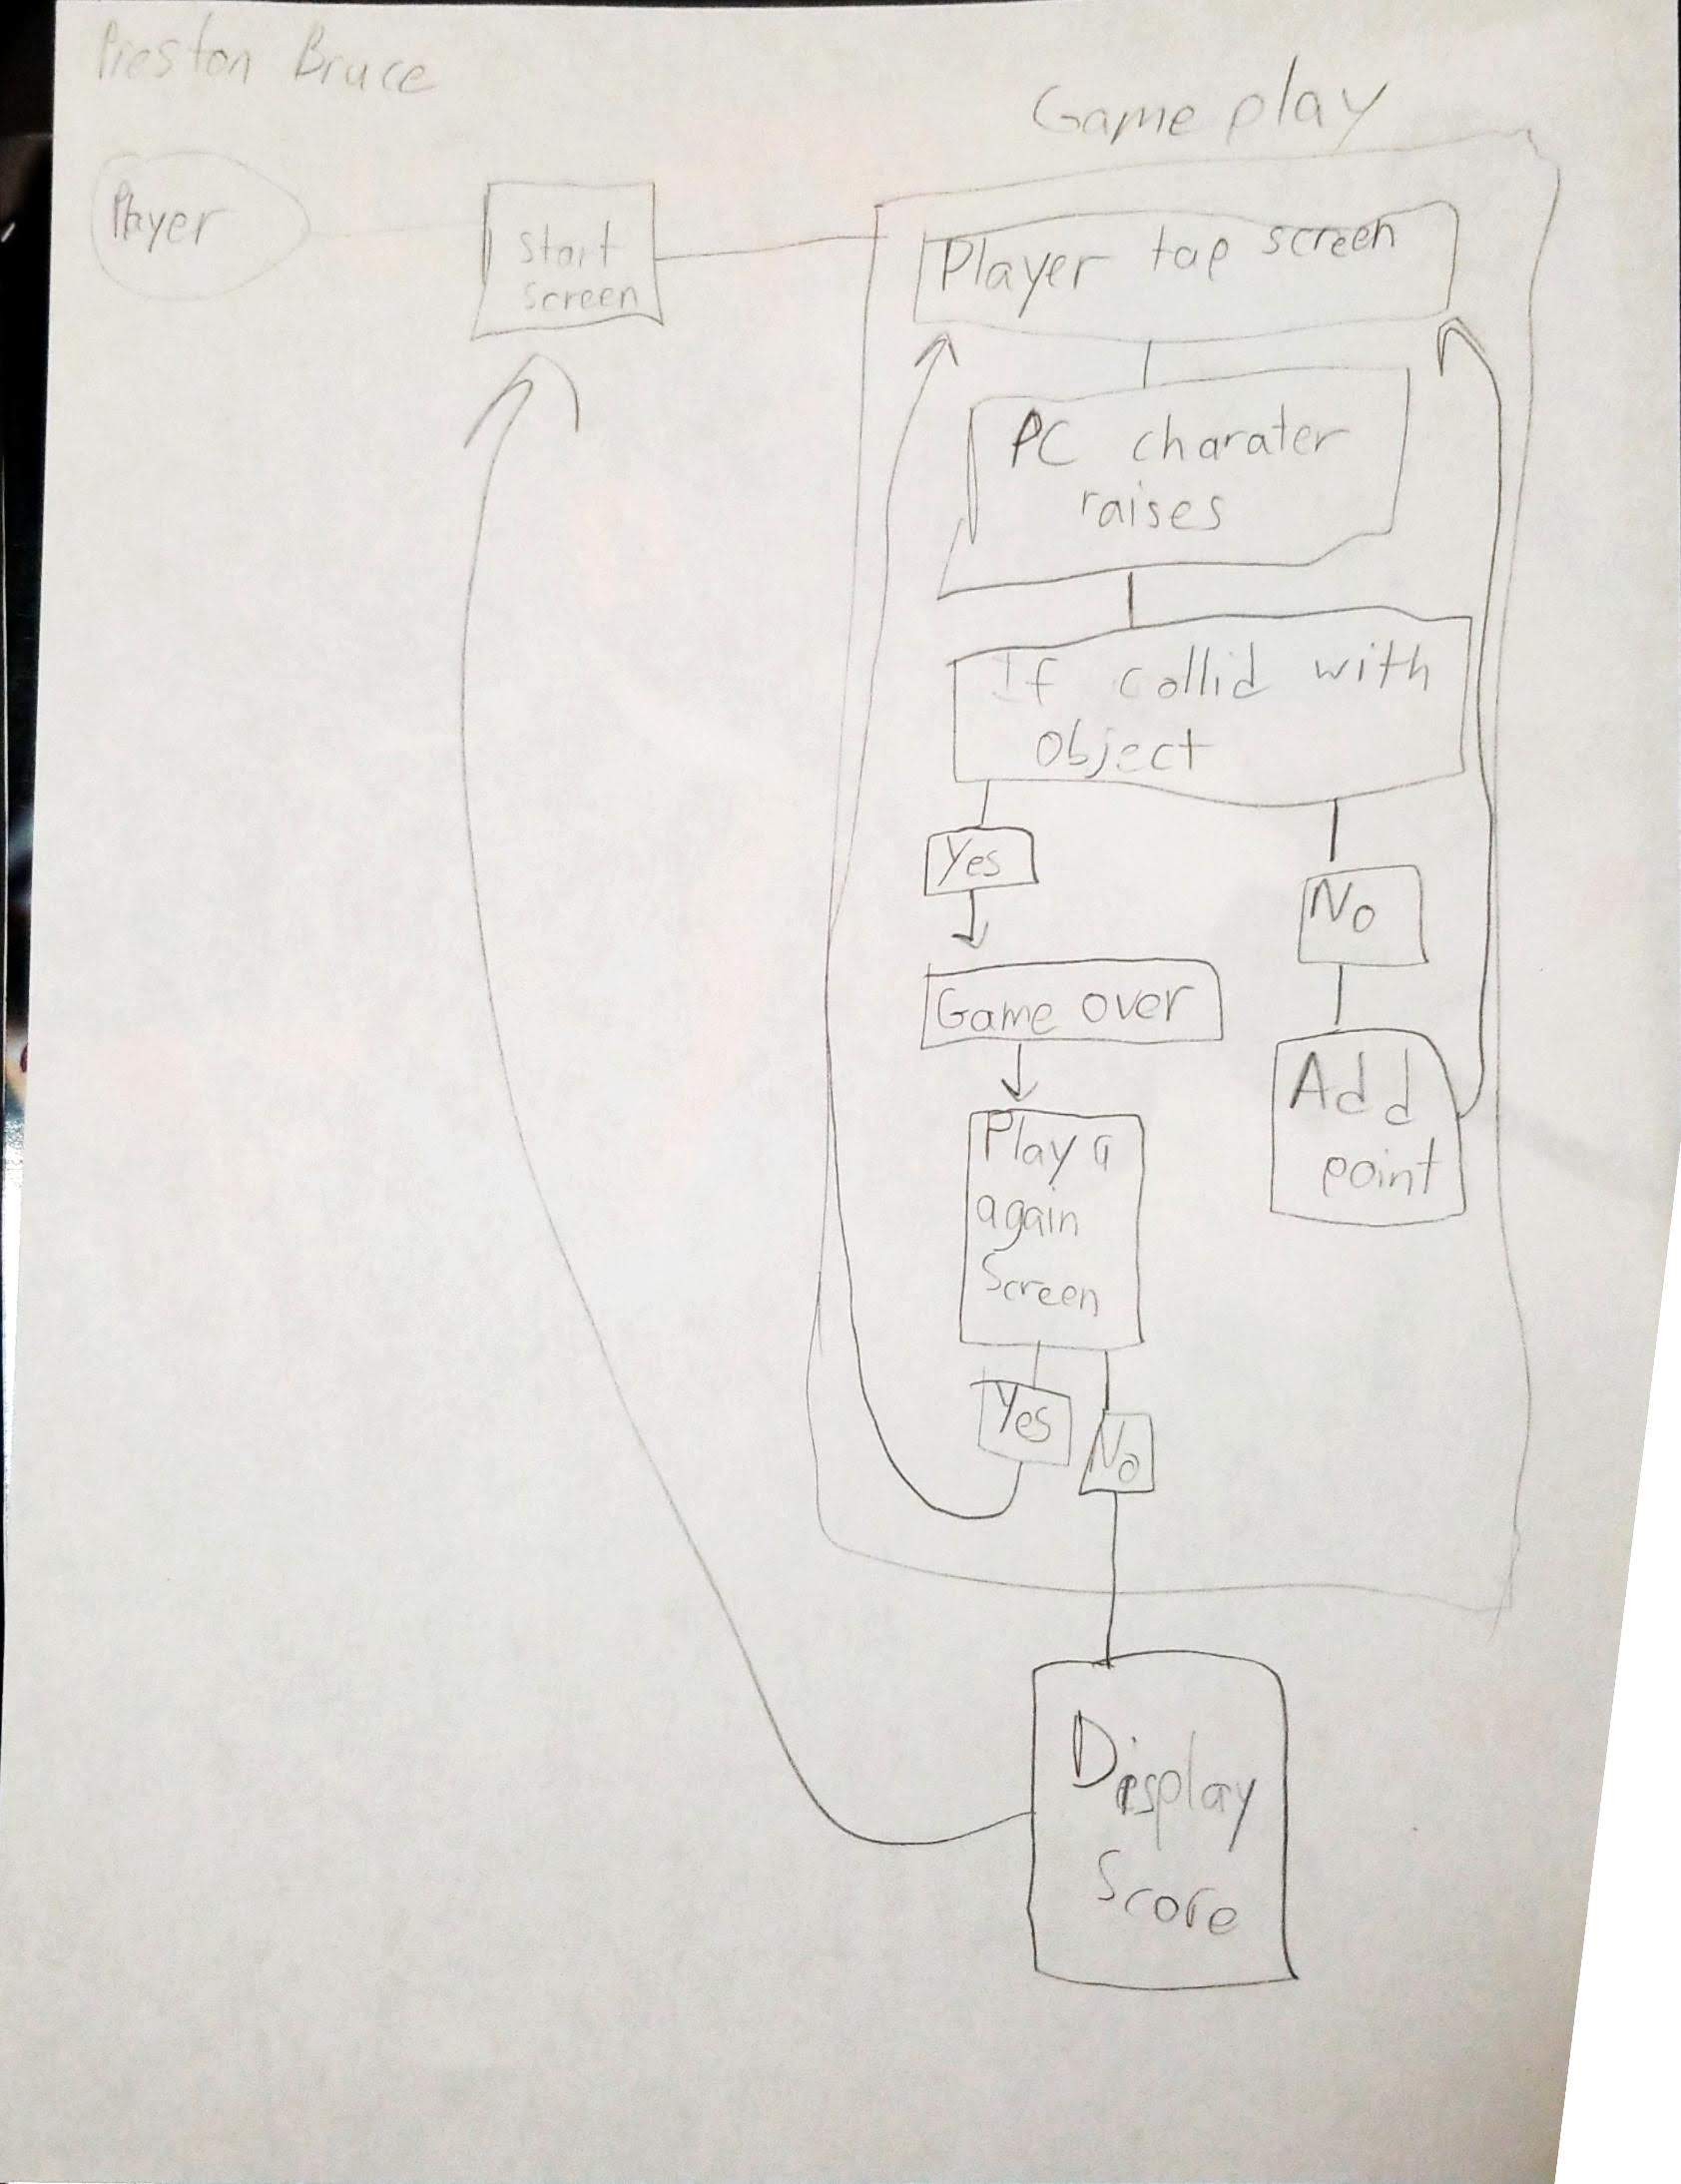 Preston Bruce
Game play
Player
Start
Screen
Player tap screen
PC charater
raises
If collid with
object
Yes
No
Game over
Add
point
Play a
again
Screen
Yes
No
Display
Score